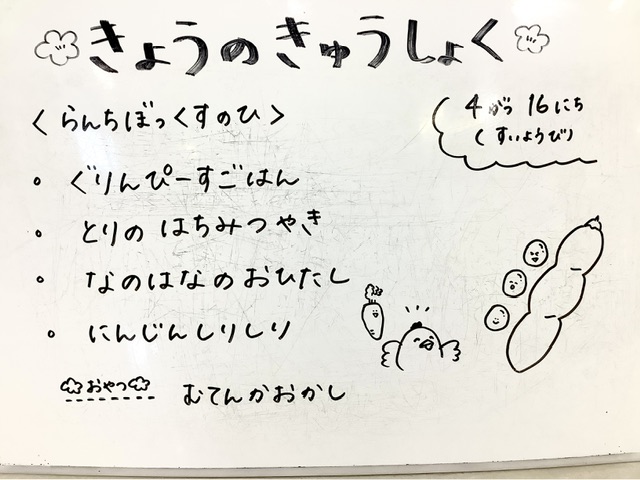 きょうのきゅうしょく
4がつ 16にち
(すいようび)
〈らんちぼっくすのひ〉
・ぐりんぴーすごはん
・とりのはちみつやき
・なのはなのおひたし
・にんじんしりしり
おやつ むてんかおかし